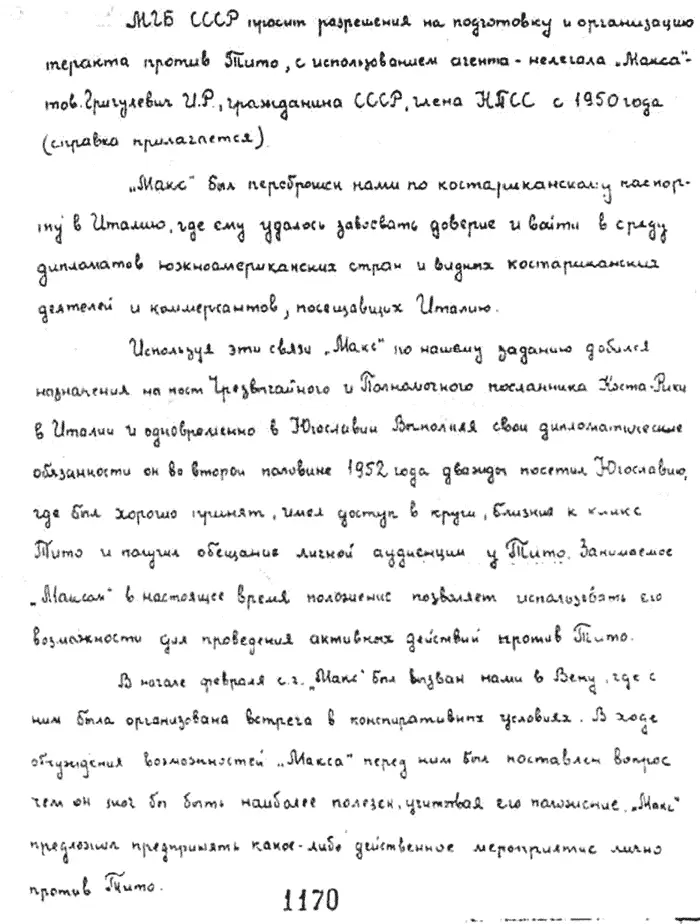 МГБ СССР просит разрешения на подготовку и организацию
теракта против Тито, с использованием агента-нелегала „Макса"-
тов. Григулевич И.Р., гражданина СССР, члена КПСС с 1950 года
(справка прилагается)
„Макс" был переброшен нами по костариканскому паспор-
ту в Италию, где ему удалось завоевать доверие и войти в среду
дипломатов южноамериканских стран и видных костариканских
деятелей и коммерсантов, посещавших Италию.
Используя эти связи „Макс" по нашему заданию добился
назначения на пост Чрезвычайного и Полномочного посланника Коста-Рики
в Италии и одновременно в Югославии Выполняя свои дипломатические
обязанности он во второй половине 1952 года дважды посетил Югославию,
где был хорошо принят, имел доступ в круги, близкие к клике
Тито и получил обещание личной аудиенции у Тито. Занимаемое
„Максом" в настоящее время положение позволяет использовать его
возможности для проведения активных действий против Тито.
В начале февраля с.г. „Макс" был вызван нами в Вену, где с
ним была организована встреча в конспиративных условиях. В ходе
обсуждения возможностей „Макса" перед ним был поставлен вопрос
чем он мог бы быть наиболее полезен, учитывая его положение. „Макс"
предложил предпринять какое-либо действенное мероприятие лично
против Тито.
1170